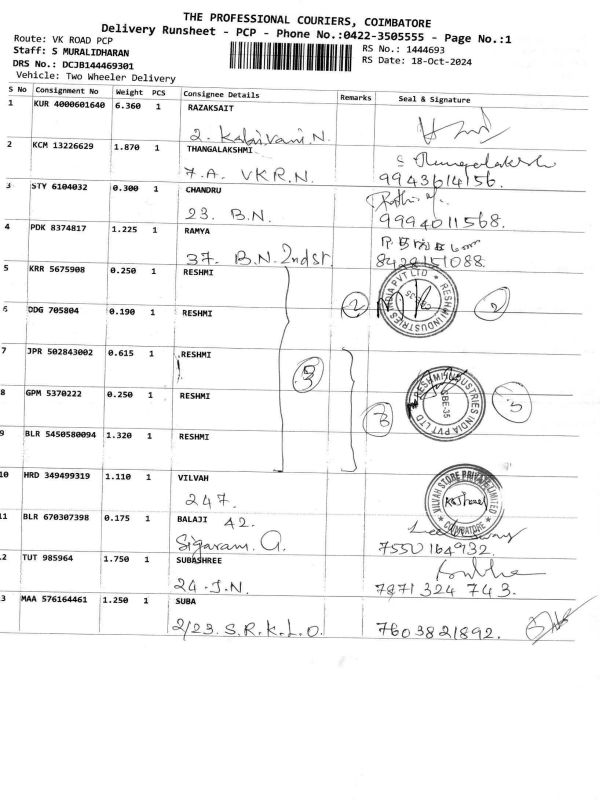 THE PROFESSIONAL COURIERS, COIMBATORE
Delivery Runsheet - PCP - Phone No.:0422-3505555 - Page No.:1
Route: VK ROAD PCP
Staff: S MURALIDHARAN
DRS No.: DCJB144469301
Vehicle: Two Wheeler Delivery
RS No.: 1444693
RS Date: 18-Oct-2024
S No Consignment No Weight PCS Consignee Details Remarks Seal & Signature
1 KUR 4000601640 6.360 1 RAZAKSAIT
2. Kalaivani N.
2 KCM 13226629 1.870 1 THANGALAKSHMI
7.A. VKR.N. 9943614156.
3 STY 6104032 0.300 1 CHANDRU
23. B.N. 9994011568.
4 PDK 8374817 1.225 1 RAMYA
37. B.N. 2nd st. 8428151088.
5 KRR 5675908 0.250 1 RESHMI
6 DDG 705804 0.190 1 RESHMI
2 2
RESHMI INDUSTRIES INDIA PVT LTD
7 JPR 502843002 0.615 1 RESHMI
8 GPM 5370222 0.250 1 RESHMI
RESHMI INDUSTRIES INDIA PVT LTD
SBE-35
9 BLR 5450580094 1.320 1 RESHMI
10 HRD 349499319 1.110 1 VILVAH
247.
VILVAH STORE PRIVATE LIMITED
COIMBATORE
11 BLR 670307398 0.175 1 BALAJI 42.
Sigaram. A. 7550164932.
2 TUT 985964 1.750 1 SUBASHREE
24. J.N. 7871 324 743.
3 MAA 576164461 1.250 1 SUBA
2/23. S.R.K.L.O. 7603821892.